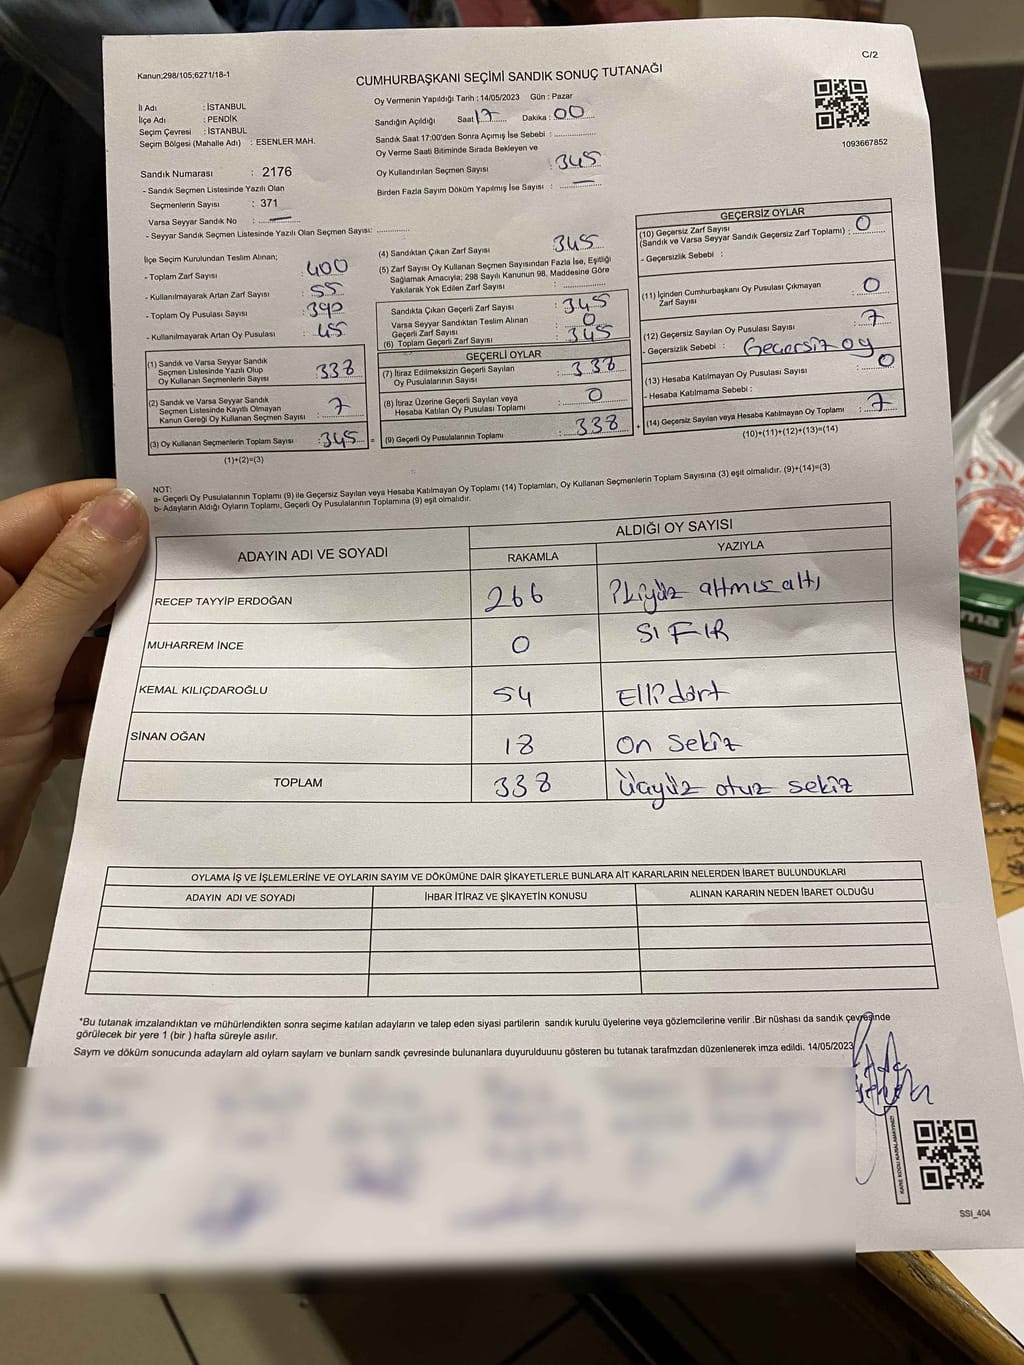 Kanun;298/105;6271/18-1
C/2
CUMHURBAŞKANI SEÇİMİ SANDIK SONUÇ TUTANAĞI
İl Adı : İSTANBUL
İlçe Adı : PENDİK
Seçim Çevresi : İSTANBUL
Seçim Bölgesi (Mahalle Adı) : ESENLER MAH.
Sandık Numarası : 2176
- Sandık Seçmen Listesinde Yazılı Olan
Seçmenlerin Sayısı : 371
Varsa Seyyar Sandık No : —
- Seyyar Sandık Seçmen Listesinde Yazılı Olan Seçmen Sayısı: ............
Oy Vermenin Yapıldığı Tarih : 14/05/2023 Gün : Pazar
Sandığın Açıldığı Saat 17 Dakika : 00
Sandık Saat 17:00'den Sonra Açımış İse Sebebi : ............
Oy Verme Saati Bitiminde Sırada Bekleyen ve
Oy Kullandırılan Seçmen Sayısı : 345
Birden Fazla Sayım Döküm Yapılmış İse Sayısı : —
1093667852
İlçe Seçim Kurulundan Teslim Alınan;
- Toplam Zarf Sayısı : 400
- Kullanılmayarak Artan Zarf Sayısı : 55
- Toplam Oy Pusulası Sayısı : 390
- Kullanılmayarak Artan Oy Pusulası : 45
(1) Sandık ve Varsa Seyyar Sandık
Seçmen Listesinde Yazılı Olup
Oy Kullanan Seçmenlerin Sayısı : 338
(2) Sandık ve Varsa Seyyar Sandık
Seçmen Listesinde Kayıtlı Olmayan
Kanun Gereği Oy Kullanan Seçmen Sayısı : 7
(3) Oy Kullanan Seçmenlerin Toplam Sayısı : 345 =
(1)+(2)=(3)
(4) Sandıktan Çıkan Zarf Sayısı 345
(5) Zarf Sayısı Oy Kullanan Seçmen Sayısından Fazla İse, Eşitliği
Sağlamak Amacıyla; 298 Sayılı Kanunun 98. Maddesine Göre
Yakılarak Yok Edilen Zarf Sayısı : ............
Sandıkta Çıkan Geçerli Zarf Sayısı : 345
Varsa Seyyar Sandıktan Teslim Alınan
Geçerli Zarf Sayısı : 0
(6) Toplam Geçerli Zarf Sayısı : 345
GEÇERLİ OYLAR
(7) İtiraz Edilmeksizin Geçerli Sayılan
Oy Pusulalarının Sayısı : 338
(8) İtiraz Üzerine Geçerli Sayılan veya
Hesaba Katılan Oy Pusulası Toplamı : 0
(9) Geçerli Oy Pusulalarının Toplamı : 338 +
GEÇERSİZ OYLAR
(10) Geçersiz Zarf Sayısı
(Sandık ve Varsa Seyyar Sandık Geçersiz Zarf Toplamı) : 0
- Geçersizlik Sebebi :
(11) İçinden Cumhurbaşkanı Oy Pusulası Çıkmayan
Zarf Sayısı : 0
(12) Geçersiz Sayılan Oy Pusulası Sayısı : 7
- Geçersizlik Sebebi : Geçersiz oy
(13) Hesaba Katılmayan Oy Pusulası Sayısı : 0
- Hesaba Katılmama Sebebi :
(14) Geçersiz Sayılan veya Hesaba Katılmayan Oy Toplamı : 7
(10)+(11)+(12)+(13)=(14)
NOT:
a- Geçerli Oy Pusulalarının Toplamı (9) ile Geçersiz Sayılan veya Hesaba Katılmayan Oy Toplamı (14) Toplamları, Oy Kullanan Seçmenlerin Toplam Sayısına (3) eşit olmalıdır. (9)+(14)=(3)
b- Adayların Aldığı Oyların Toplamı, Geçerli Oy Pusulalarının Toplamına (9) eşit olmalıdır.
ADAYIN ADI VE SOYADI
ALDIĞI OY SAYISI
RAKAMLA YAZIYLA
RECEP TAYYİP ERDOĞAN 266 İkiyüz altmış altı
MUHARREM İNCE 0 SIFIR
KEMAL KILIÇDAROĞLU 54 Elli dört
SİNAN OĞAN 18 on sekiz
TOPLAM 338 üçyüz otuz sekiz
OYLAMA İŞ VE İŞLEMLERİNE VE OYLARIN SAYIM VE DÖKÜMÜNE DAİR ŞİKAYETLERLE BUNLARA AİT KARARLARIN NELERDEN İBARET BULUNDUKLARI
ADAYIN ADI VE SOYADI İHBAR İTİRAZ VE ŞİKAYETİN KONUSU ALINAN KARARIN NEDEN İBARET OLDUĞU
*Bu tutanak imzalandıktan ve mühürlendikten sonra seçime katılan adayların ve talep eden siyasi partilerin sandık kurulu üyelerine veya gözlemcilerine verilir .Bir nüshası da sandık çevresinde
görülecek bir yere 1 (bir ) hafta süreyle asılır.
Saym ve döküm sonucunda adaylarn ald oylarn saylarn ve bunlarn sandk çevresinde bulunanlara duyurulduunu gösteren bu tutanak tarafmzdan düzenlenerek imza edildi. 14/05/2023
KARE KODU KARALAMAYINIZ!
SSI_404